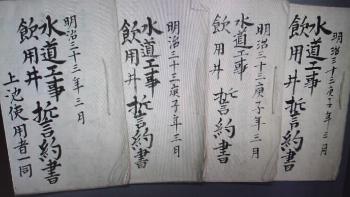 明治三十三庚子年三月
水道工事
飲用井
誓約書
明治三十三庚子年三月
水道工事
飲用井
誓約書
明治三十三庚子年三月
水道工事
飲用井
誓約書
明治三十三年三月
水道工事
飲用井
誓約書
上池使用者一同